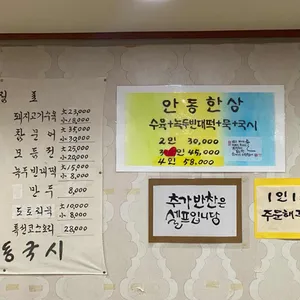 표
돼지고기수육 大 23,000
小 18,000
참문어 大 35,000
小 30,000
모듬전 大 25,000
小 20,000
녹두빈대떡 大 15,000
만두 8,000
도토리묵 大 10,000
小 8,000
특선코스요리 28,000
동국시
안동한상
수육+녹두빈대떡+묵+국시
2인 30,000
3인 45,000
4인 58,000
추가반찬은
셀프입니당
1인1
주문해주